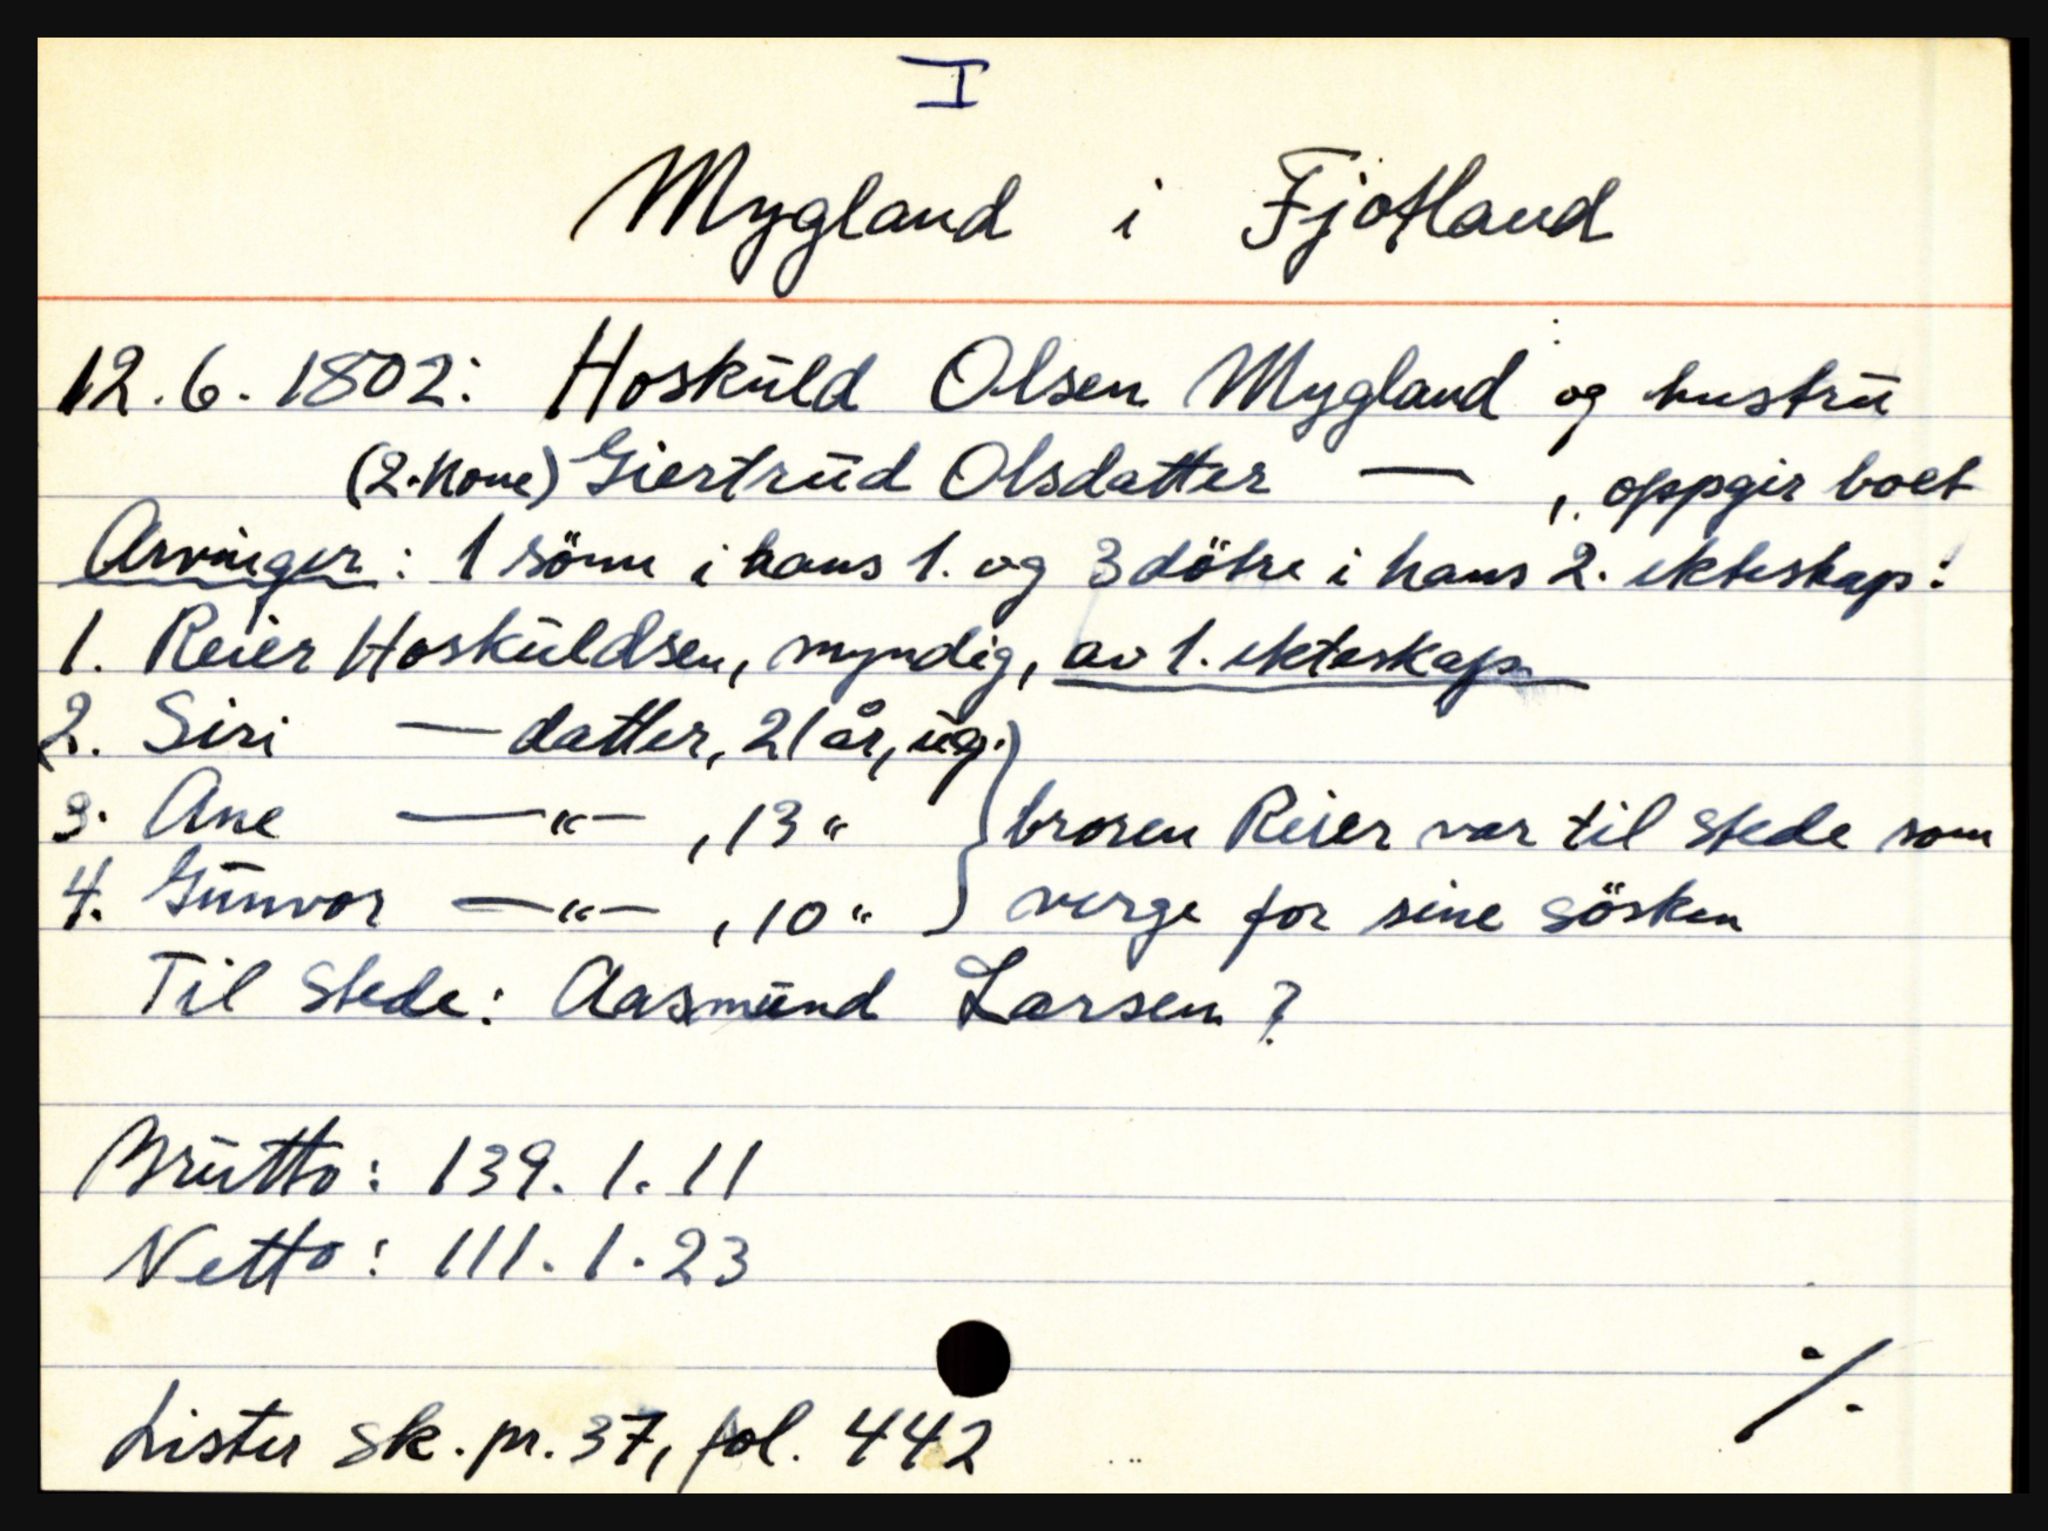 I
Mygland i Fjotland
12.6.1802: Hoskuld Olsen Mygland og hustru
(2. kone) Giertrud Olsdatter — , oppgir boet
Arvinger: 1 sönn i hans 1. og 3 dötre i hans 2. ekteskap:
1. Reier Hoskuldsen, myndig, av 1. ekteskap
2. Siri — datter, 21 år, ug.
3. Ane —"— , 13 " broren Reier var til stede som
4. Gunvor —"— , 10 " verge for sine sösken
Til stede: Aasmund Larsen?
Brutto: 139. 1. 11
Netto: 111. 1. 23
./.
Lister sk. pr. 37, fol. 442